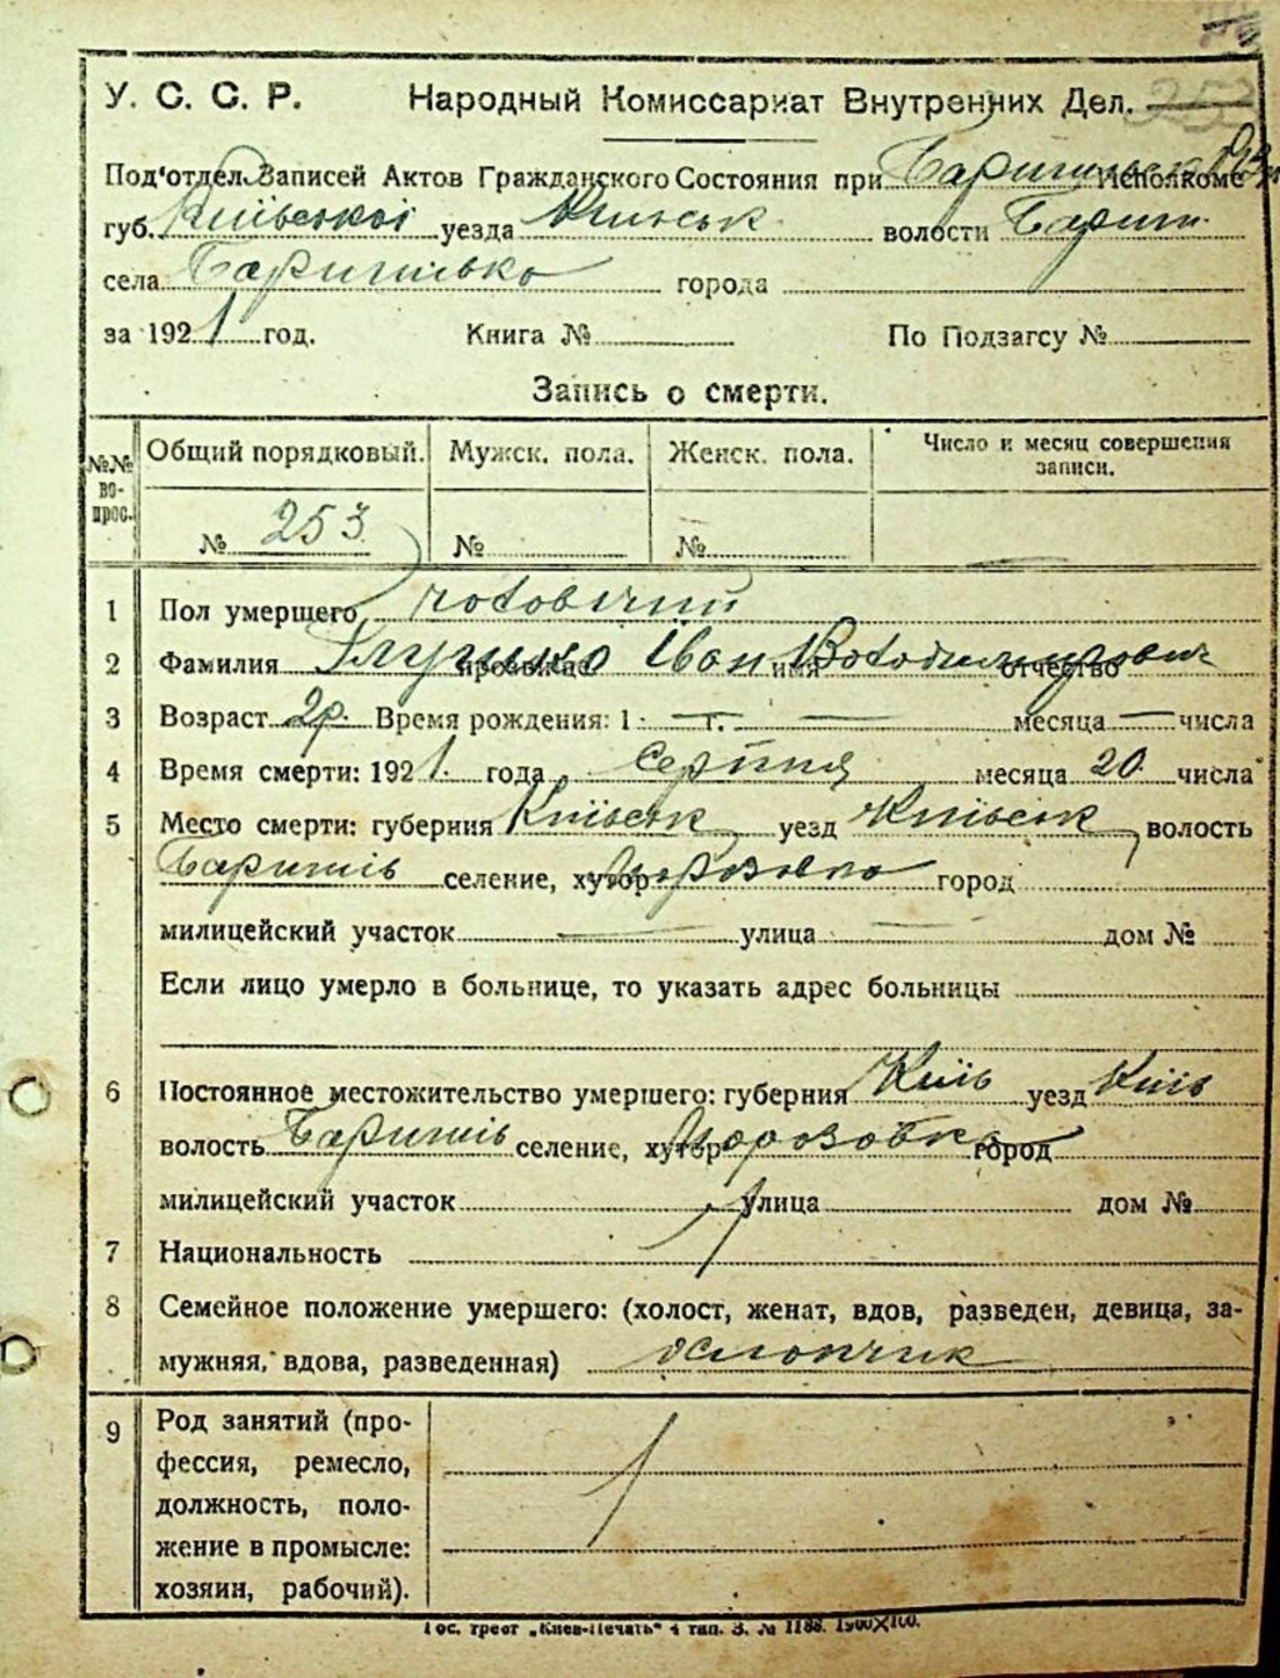 У. С. С. Р. Народный Комиссариат Внутренних Дел. 253
Под'отдел Записей Актов Гражданского Состояния при Исполкоме
губ. Київської уезда волости Бариш.
села Баришівка города
за 1921 год. Книга № По Подзагсу №
Запись о смерти.
№№ во-прос. Общий порядковый. Мужск. пола. Женск. пола. Число и месяц совершения записи.
№ 253 № №
1 Пол умершего чоловічий
2 Фамилия прозвище Іван имя Володимирович отчество
3 Возраст 2р. Время рождения: 1 — г. — месяца — числа
4 Время смерти: 1921. года серпня месяца 20 числа
5 Место смерти: губерния Київськ уезд Київськ, волость
Баришів селение, хутор Морозовка город
милицейский участок — улица — дом №
Если лицо умерло в больнице, то указать адрес больницы
6 Постоянное местожительство умершего: губерния Київ уезд Київ
волость Баришів селение, хутор Морозовка город
милицейский участок улица дом №
7 Национальность
8 Семейное положение умершего: (холост, женат, вдов, разведен, девица, за-
мужняя, вдова, разведенная) хлопчик
9 Род занятий (про-
фессия, ремесло,
должность, поло-
жение в промысле:
хозяин, рабочий).
Гос. трест „Киев-Печать" 4 тип. З. № 1188. 1900×100.